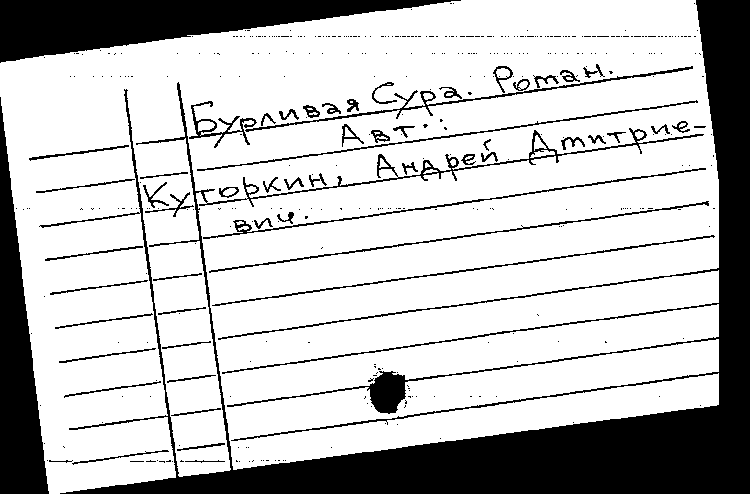 Бурливая Сура. Роман.
Авт.:
Куторкин, Андрей Дмитрие-
вич.